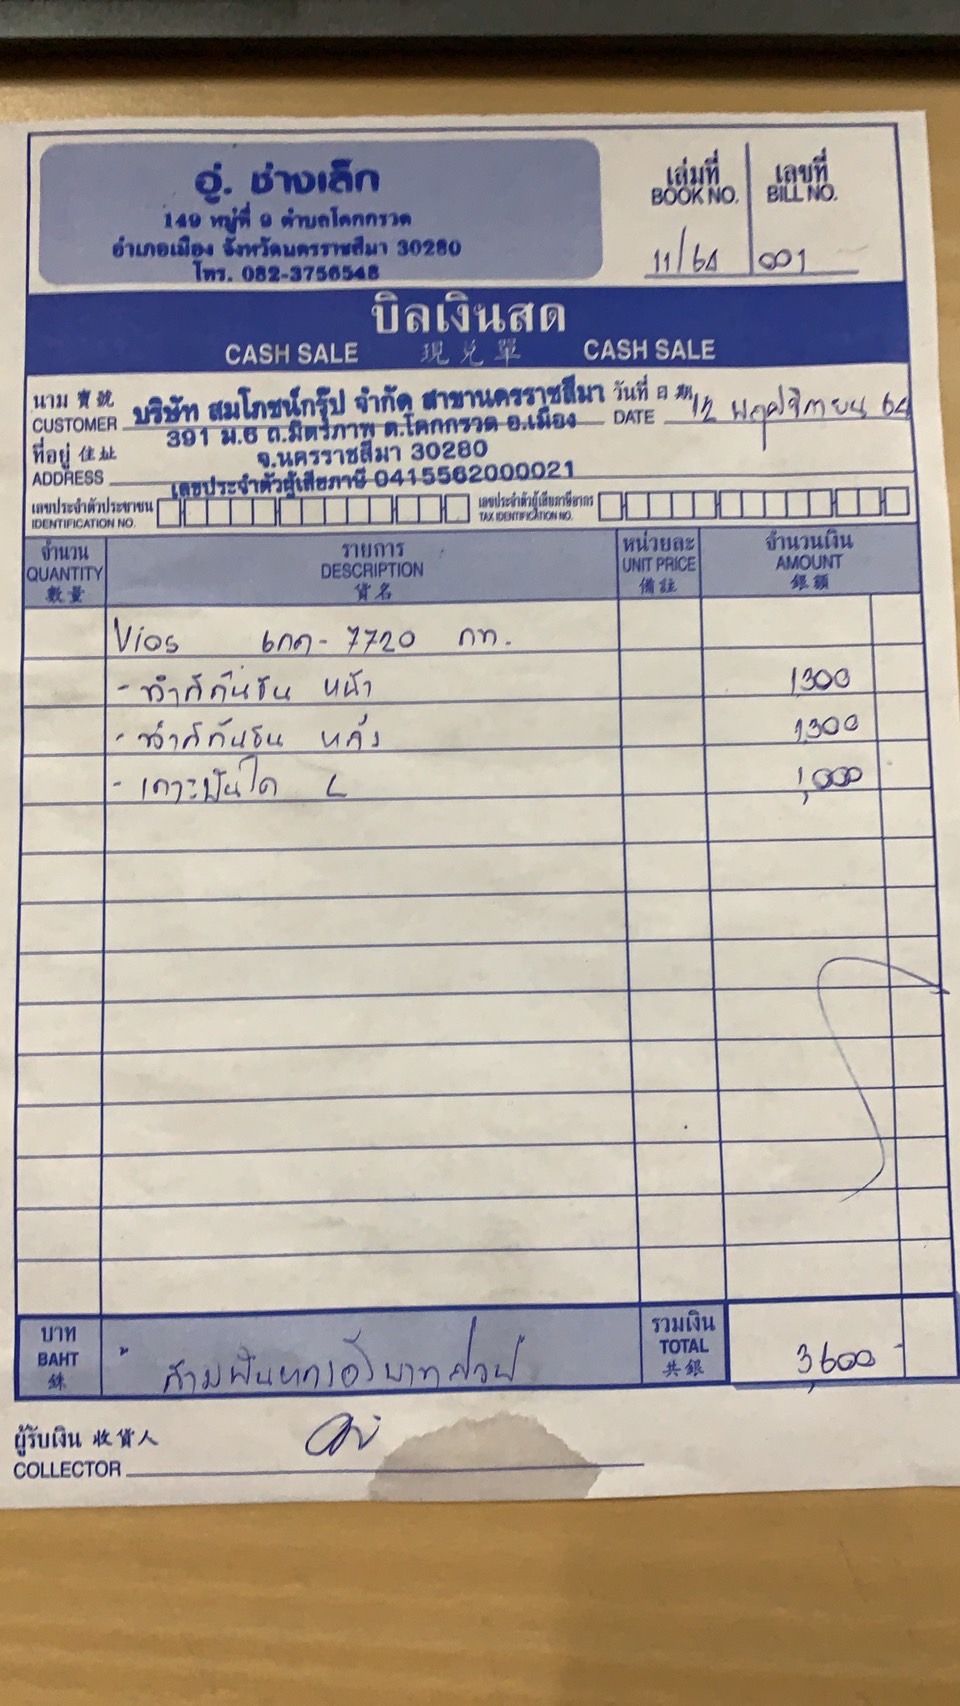 อู่. ช่างเล็ก
149 หมู่ที่ 9 ตำบลโคกกรวด
อำเภอเมือง จังหวัดนครราชสีมา 30280
โทร. 082-3756548
เล่มที่ เลขที่
BOOK NO. BILL NO.
11/64 001
บิลเงินสด
CASH SALE 現兌單 CASH SALE
นาม 寶號 บริษัท สมโภชน์กรุ๊ป จำกัด สาขานครราชสีมา วันที่ 日期 12 พฤศจิกายน 64
CUSTOMER 391 ม.6 ถ.มิตรภาพ ต.โคกกรวด อ.เมือง DATE
ที่อยู่ 住址 จ.นครราชสีมา 30280
ADDRESS เลขประจำตัวผู้เสียภาษี 0415562000021
เลขประจำตัวประชาชน เลขประจำตัวผู้เสียภาษีอากร
IDENTIFICATION NO. TAX IDENTIFICATION NO.
จำนวน รายการ หน่วยละ จำนวนเงิน
QUANTITY DESCRIPTION UNIT PRICE AMOUNT
數量 貨名 備註 銀額
Vios 6กค-7720 กท.
- ทำสีกันชน หน้า 1,300
- ทำสีกันชน หลัง 1,300
- เคาะบันได L 1,000
บาท รวมเงิน
BAHT สามพันหกร้อยบาทถ้วน TOTAL 3,600-
銖 共銀
ผู้รับเงิน 收貨人
COLLECTOR